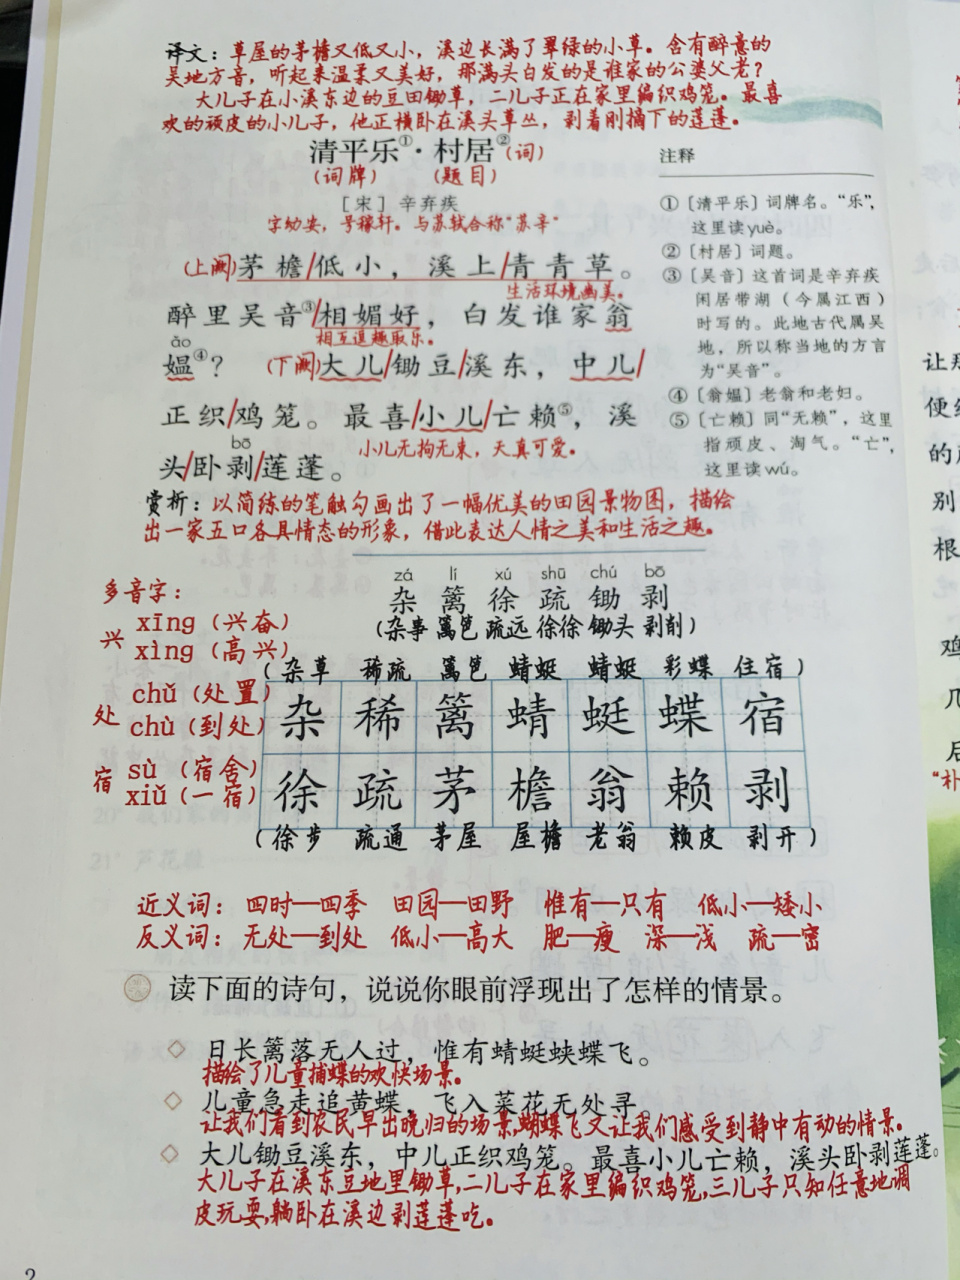 译文：草屋的茅檐又低又小，溪边长满了翠绿的小草。含有醉意的
吴地方音，听起来温柔又美好，那满头白发的是谁家的公婆父老？
大儿子在小溪东边的豆田锄草，二儿子正在家里编织鸡笼。最喜
欢的顽皮的小儿子，他正横卧在溪头草丛，剥着刚摘下的莲蓬。
清平乐①·村居②(词)
(词牌) (题目)
［宋］辛弃疾
字幼安，号稼轩。与苏轼合称"苏辛"
(上阙)茅檐/低小，溪上/青青草。
生活环境幽美。
醉里吴音③/相媚好，白发谁家翁
相互逗趣取乐。
ǎo
媪④？(下阙)大儿/锄豆/溪东，中儿/
正织/鸡笼。最喜/小儿/亡赖⑤，溪
小儿无拘无束，天真可爱。
bō
头/卧剥/莲蓬。
注释
①〔清平乐〕词牌名。“乐”，
这里读yuè。
②〔村居〕词题。
③〔吴音〕这首词是辛弃疾
闲居带湖（今属江西）
时写的。此地古代属吴
地，所以称当地的方言
为“吴音”。
④〔翁媪〕老翁和老妇。
⑤〔亡赖〕同“无赖”，这里
指顽皮、淘气。“亡”，
这里读wú。
赏析：以简练的笔触勾画出了一幅优美的田园景物图，描绘
出一家五口各具情态的形象，借此表达人情之美和生活之趣。
zá lí xú shū chú bō
杂 篱 徐 疏 锄 剥
(杂事 篱笆 疏远 徐徐 锄头 剥削)
多音字：
兴 xīng (兴奋)
xìng (高兴)
处 chǔ (处置)
chù (到处)
宿 sù (宿舍)
xiǔ (一宿)
(杂草 稀疏 篱笆 蜻蜓 蜻蜓 彩蝶 住宿)
杂 稀 篱 蜻 蜓 蝶 宿
徐 疏 茅 檐 翁 赖 剥
(徐步 疏通 茅屋 屋檐 老翁 赖皮 剥开)
近义词：四时—四季 田园—田野 惟有—只有 低小—矮小
反义词：无处—到处 低小—高大 肥—瘦 深—浅 疏—密
读下面的诗句，说说你眼前浮现出了怎样的情景。
◇ 日长篱落无人过，惟有蜻蜓蛱蝶飞。
描绘了儿童捕蝶的欢快场景。
◇ 儿童急走追黄蝶，飞入菜花无处寻。
让我们看到农民早出晚归的场景，蝴蝶飞又让我们感受到静中有动的情景。
◇ 大儿锄豆溪东，中儿正织鸡笼。最喜小儿亡赖，溪头卧剥莲蓬。
大儿子在溪东豆地里锄草，二儿子在家里编织鸡笼，三儿子只知任意地调
皮玩耍，躺卧在溪边剥莲蓬吃。
2
让
便
的
别
根
鸡
几
后
“朴